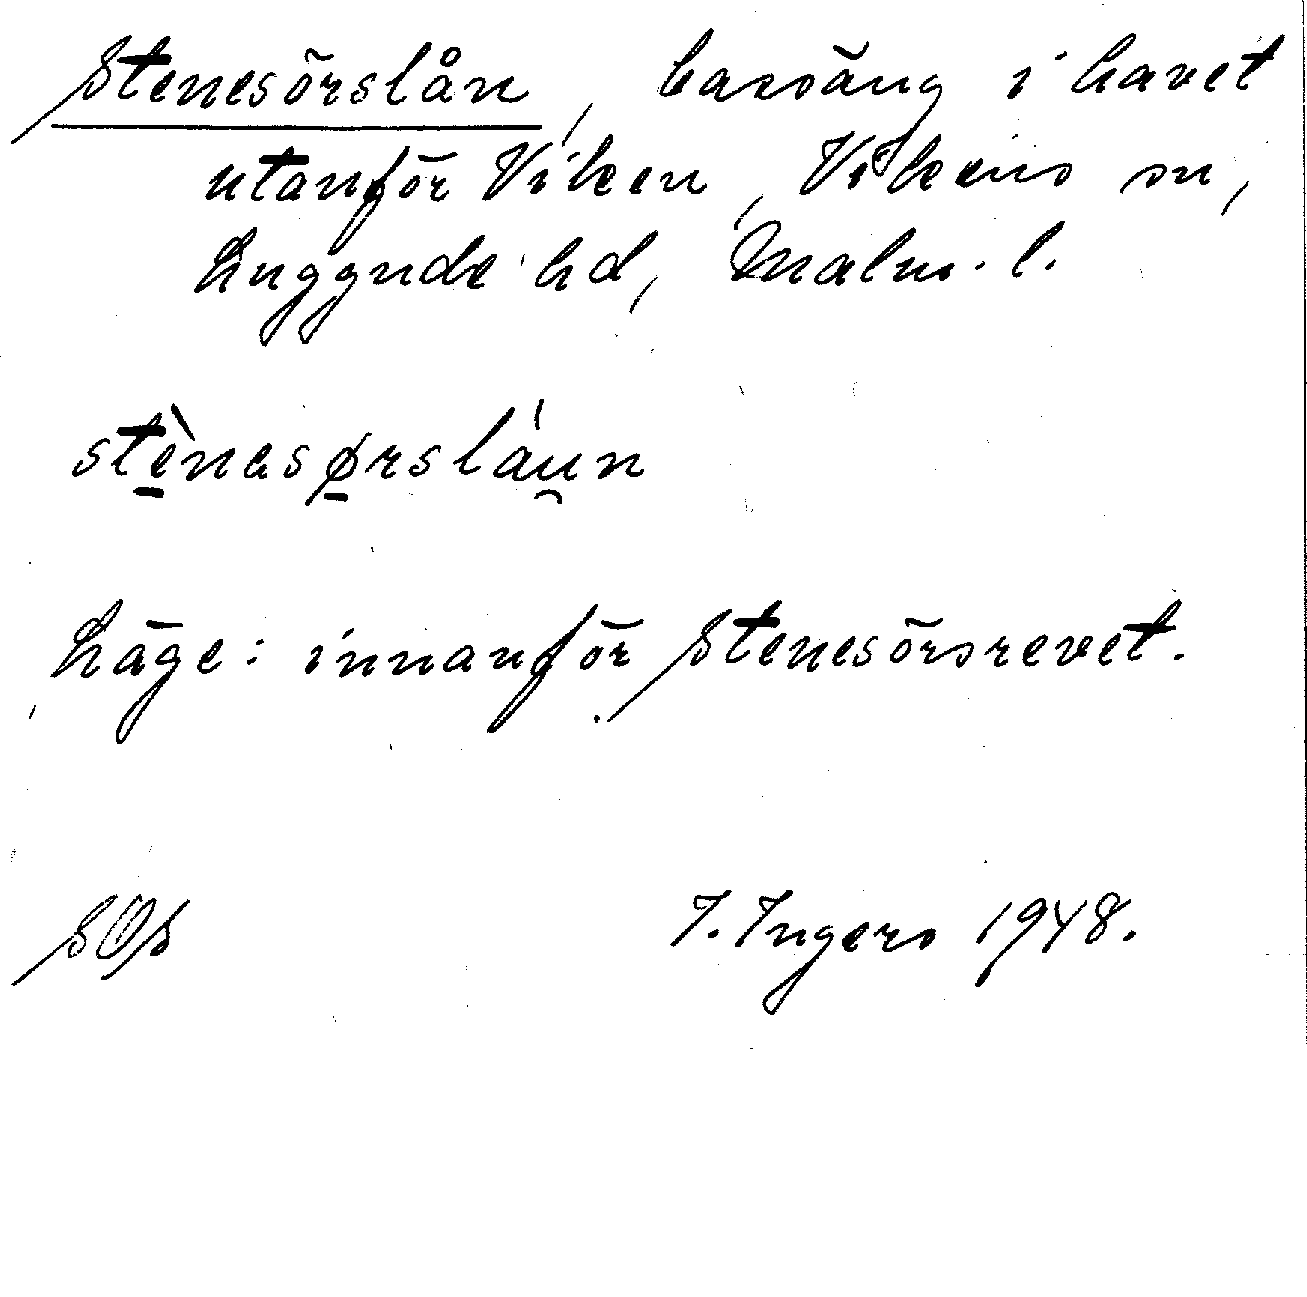 Stenesörslån, bassäng i havet
utanför Viken, Vikens sn,
Luggude hd, Malm. l.
stènəsørsláu̯n
Läge: innanför Stenesörsrevet.
SOS I. Ingers 1948.